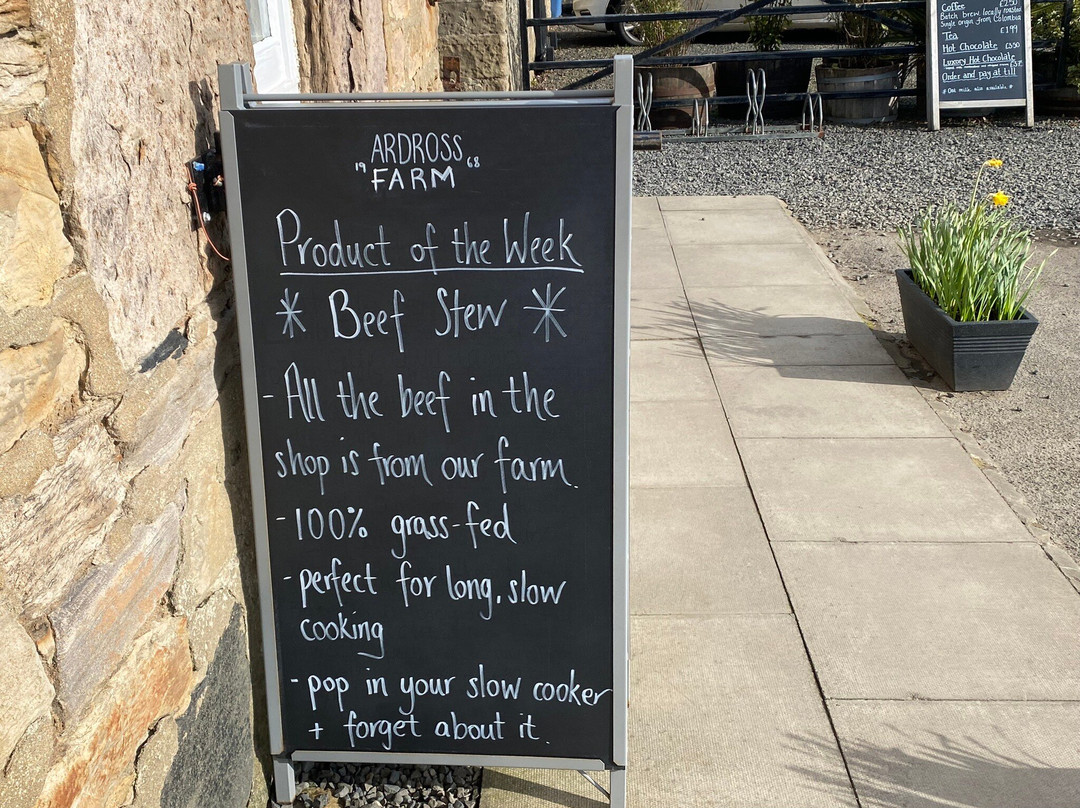 ARDROSS
19 FARM 68
Product of the Week
* Beef Stew *
- All the beef in the
shop is from our farm.
- 100% grass-fed
- perfect for long, slow
cooking
- pop in your slow cooker
+ forget about it.
Coffee £2.50
Batch brew locally roasted
Single origin from Colombia
Tea £1.99
Hot Chocolate £3.50
Luxury Hot Chocolate
Order and pay at till
* Oat milk also available *